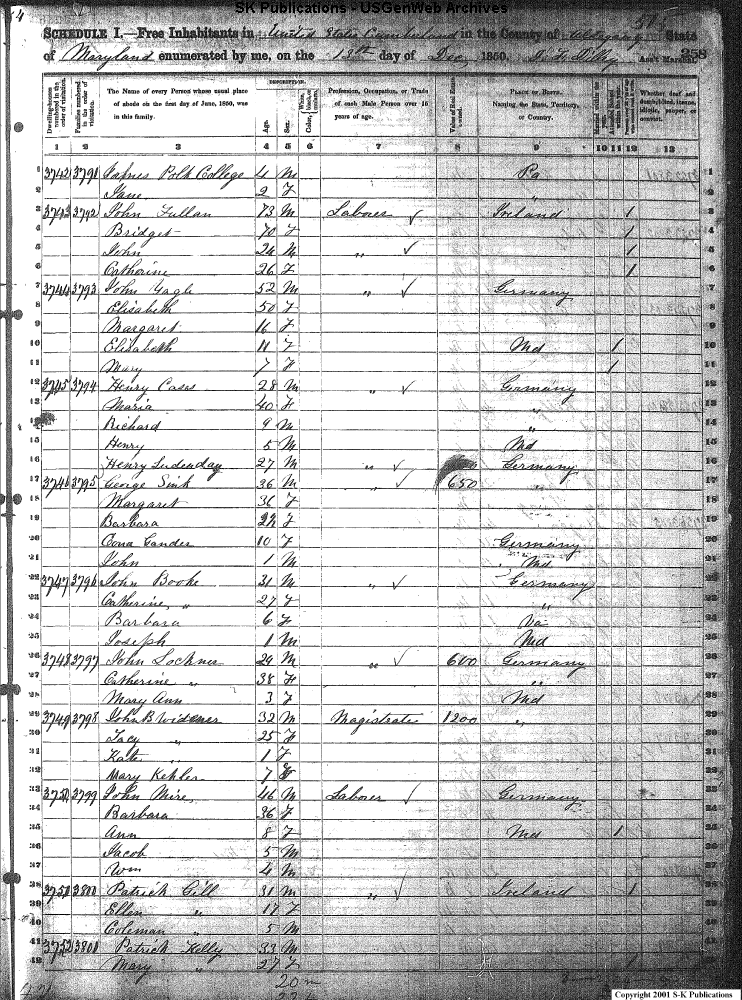 SK Publications - USGenWeb Archives
SCHEDULE I.—Free Inhabitants in United States Cumberland in the County of Allegany State
of Maryland enumerated by me, on the 13th day of Dec, 1850. Ass't Marshal. 258
Dwelling-houses numbered in the order of visitation. Families numbered in the order of visitation. The Name of every Person whose usual place of abode on the first day of June, 1850, was in this family. DESCRIPTION. Age. Sex. Color, White, black, or mulatto. Profession, Occupation, or Trade of each Male Person over 15 years of age. Value of Real Estate owned. PLACE OF BIRTH. Naming the State, Territory, or Country. Married within the year. Attended School within the year. Whether deaf and dumb, blind, insane, idiotic, pauper, or convict.
1 2 3 4 5 6 7 8 9 10 11 12 13
1 3742 3791 James Polk College 4 M Pa 1
2 Jane 2 F " 2
3 3743 3792 John Fallan 73 M Laborer ✓ Ireland 1 3
4 Bridget 70 F 1 4
5 John 24 M " ✓ 1 5
6 Catherine 26 F 1 6
7 3744 3793 John Yagle 52 M " ✓ Germany 7
8 Elisabeth 50 F 8
9 Margaret 16 F 9
10 Elisabeth 11 F Md 1 10
11 Mary 7 F 1 11
12 3745 3794 Henry Casas 28 M " ✓ Germany 12
13 Maria 40 F " 13
14 Richard 9 M " 14
15 Henry 5 M Md 15
16 Henry Ludenday 27 M " ✓ Germany 16
17 3746 3795 George Sink 36 M " ✓ 650 " 17
18 Margaret 36 F 18
19 Barbara F 19
20 Cander 10 F Germany 20
21 John 1 M Md 21
22 3747 3796 John Booke 31 M " ✓ Germany 22
23 Catherine " 27 F " 23
24 Barbara 6 F Va 24
25 Joseph 1 M Md 25
26 3748 3797 John Lochner 29 M " ✓ 600 Germany 26
27 Catherine " 38 F " 27
28 Mary Ann 3 F Md 28
29 3749 3798 John B Widener 32 M Magistrate 1200 " 29
30 Lacy " 25 F 30
31 Kate " 1 F 31
32 Mary Kehler 7 F 32
33 3750 3799 John Mire 46 M Laborer ✓ Germany 33
34 Barbara 36 F 34
35 Ann 8 F Md 1 35
36 Jacob 5 M 36
37 Wm 4 M 37
38 3751 3800 Patrick Gill 31 M " ✓ Ireland 1 38
39 Ellen " 17 F 39
40 Coleman " 5 M 40
41 3752 3801 Patrick Kelly 33 M 41
42 Mary " 27 F 1 42
20 m
Copyright 2001 S-K Publications